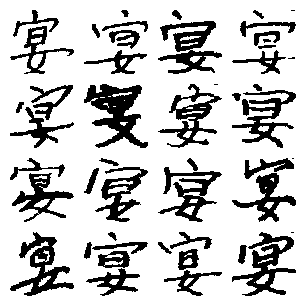 宴宴宴宴
宴宴宴宴
宴宴宴宴
宴宴宴宴